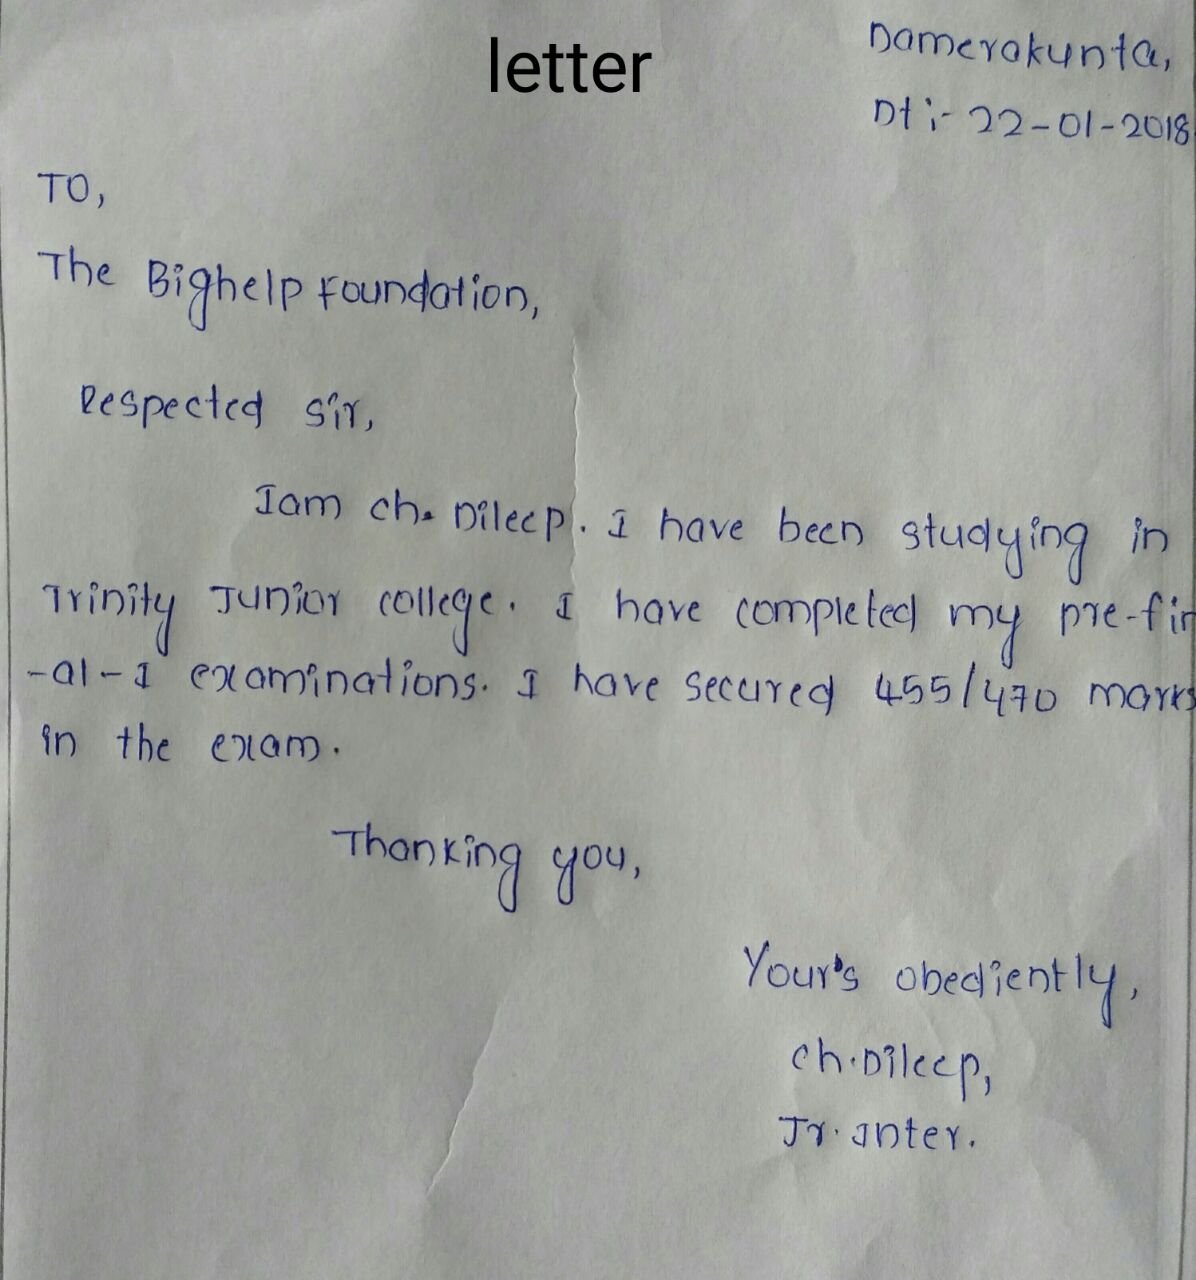 letter
Damerakunta,
Dt:- 22-01-2018
TO,
The Bighelp Foundation,
Respected sir,
Iam ch. Dileep. I have been studying in
Trinity Junior college. I have completed my pre-fin
-al-I examinations. I have secured 455/470 marks
in the exam.
Thanking you,
Your's obediently,
Ch.Dileep,
Jr.Inter.